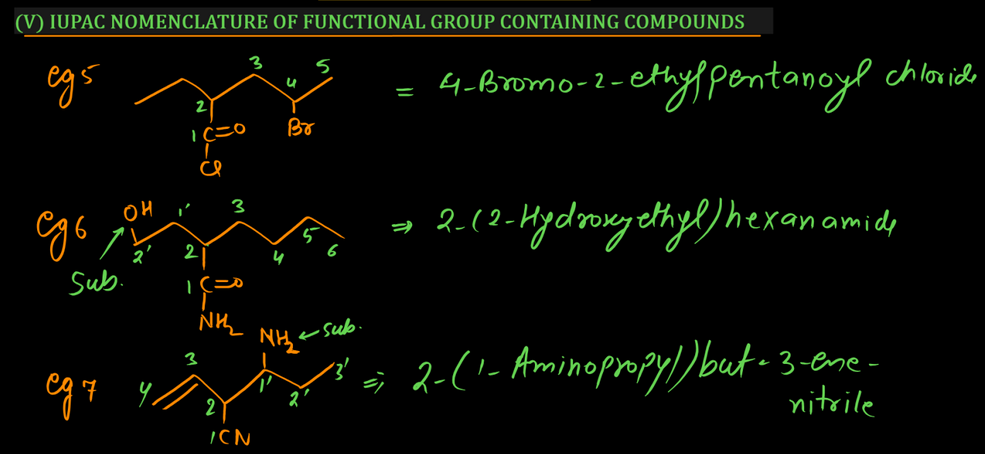 (V) IUPAC NOMENCLATURE OF FUNCTIONAL GROUP CONTAINING COMPOUNDS
eg 5
3
5
4
2
1 C=O
Br
Cl
= 4-Bromo-2-ethylpentanoyl chloride
eg 6
OH
1'
3
2'
2
4
5
6
Sub.
1 C=O
NH2
⇒ 2-(2-Hydroxyethyl)hexanamide
eg 7
NH2 ← sub.
3
4
2
1'
2'
3'
1CN
⇒ 2-(1-Aminopropyl)but-3-ene-
nitrile